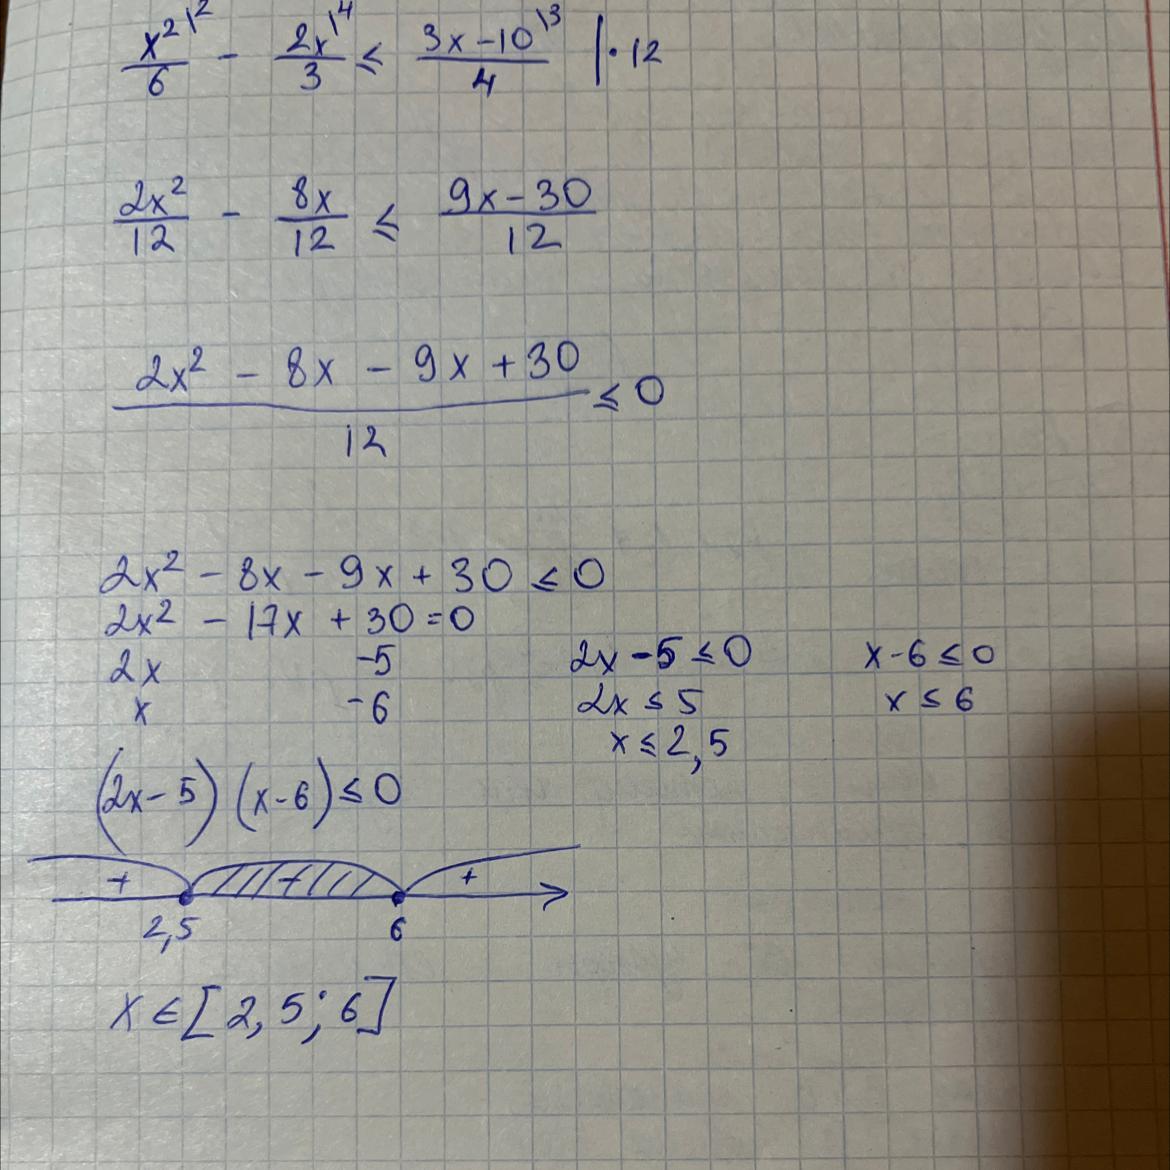 x²\2/6 - 2x\4/3 ≤ 3x-10\3/4 | · 12
2x²/12 - 8x/12 ≤ 9x-30/12
2x² - 8x - 9x + 30/12 ≤ 0
2x² - 8x - 9x + 30 ≤ 0
2x² - 17x + 30 = 0
2x -5
x -6
2x - 5 ≤ 0
2x ≤ 5
x ≤ 2,5
x - 6 ≤ 0
x ≤ 6
(2x - 5) (x - 6) ≤ 0
+ - +
2,5 6
x ∈ [2,5; 6]